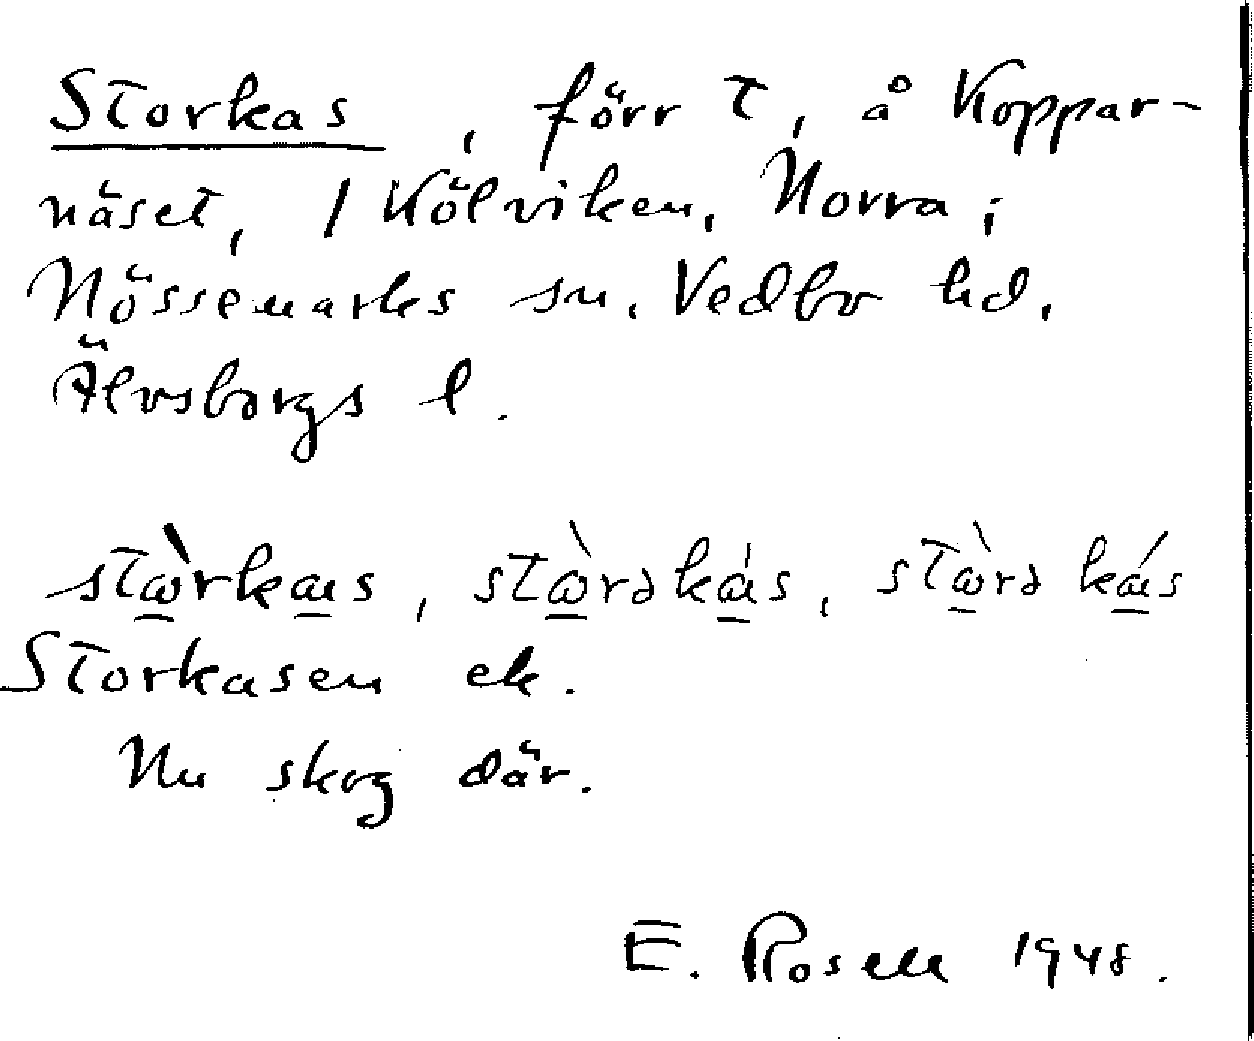 Storkas, förr t, å Koppar-
näset, 1 Kölviken, Norra i
Nössemarks sn. Vedbo hd.
Älvsborgs l.
stὼ̲rkα̲s, stὼ̲rəkά̲s, stὼ̲rə kά̲s
Storkasen ek.
Nu skog där.
E. Rosell 1948.